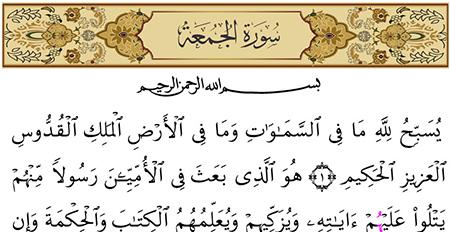 سُورَةُ الجُمُعَةِ
بِسْمِ اللهِ الرَّحْمٰنِ الرَّحِيمِ
يُسَبِّحُ لِلَّهِ مَا فِى السَّمَـٰوَٰتِ وَمَا فِى الْأَرْضِ الْمَلِكِ الْقُدُّوسِ
الْعَزِيزِ الْحَكِيمِ ﴿١﴾ هُوَ الَّذِى بَعَثَ فِى الْأُمِّيِّـۧنَ رَسُولاً مِّنْهُمْ
يَتْلُوا۟ عَلَيْهِمْ ءَايَـٰتِهِۦ وَيُزَكِّيهِمْ وَيُعَلِّمُهُمُ الْكِتَـٰبَ وَالْحِكْمَةَ وَإِن